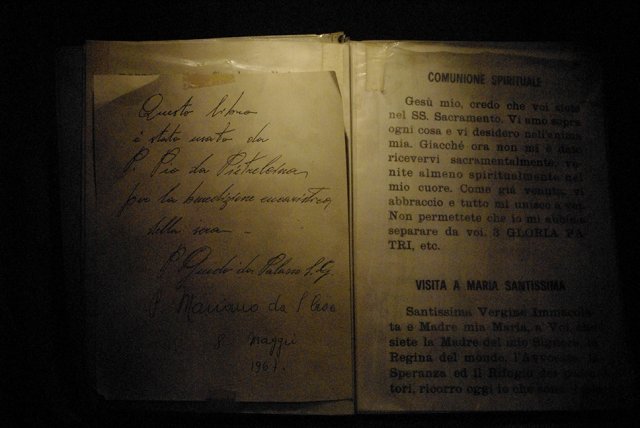 Questo libro
è stato usato da
P. Pio da Pietrelcina,
per la benedizione eucaristica,
della sera -
P. Guido da
P. Mariano da
8
1967.
COMUNIONE SPIRITUALE
Gesù mio, credo che voi siete
nel SS. Sacramento. Vi amo sopra
ogni cosa e vi desidero nell'anima
mia. Giacchè ora non mi è dato
ricevervi sacramentalmente, ve-
nite almeno spiritualmente nel
mio cuore. Come già venuto, vi
abbraccio e tutto mi unisco a voi.
Non permettete che io mi abbia a
separare da voi. 3 GLORIA PA-
TRI, etc.
VISITA A MARIA SANTISSIMA
Santissima Vergine Immacola-
ta e Madre mia Maria, a Voi, che
siete la Madre del mio Signore, la
Regina del mondo, l'Avvocata, la
Speranza ed il Rifugio dei pecca-
tori, ricorro oggi io che sono